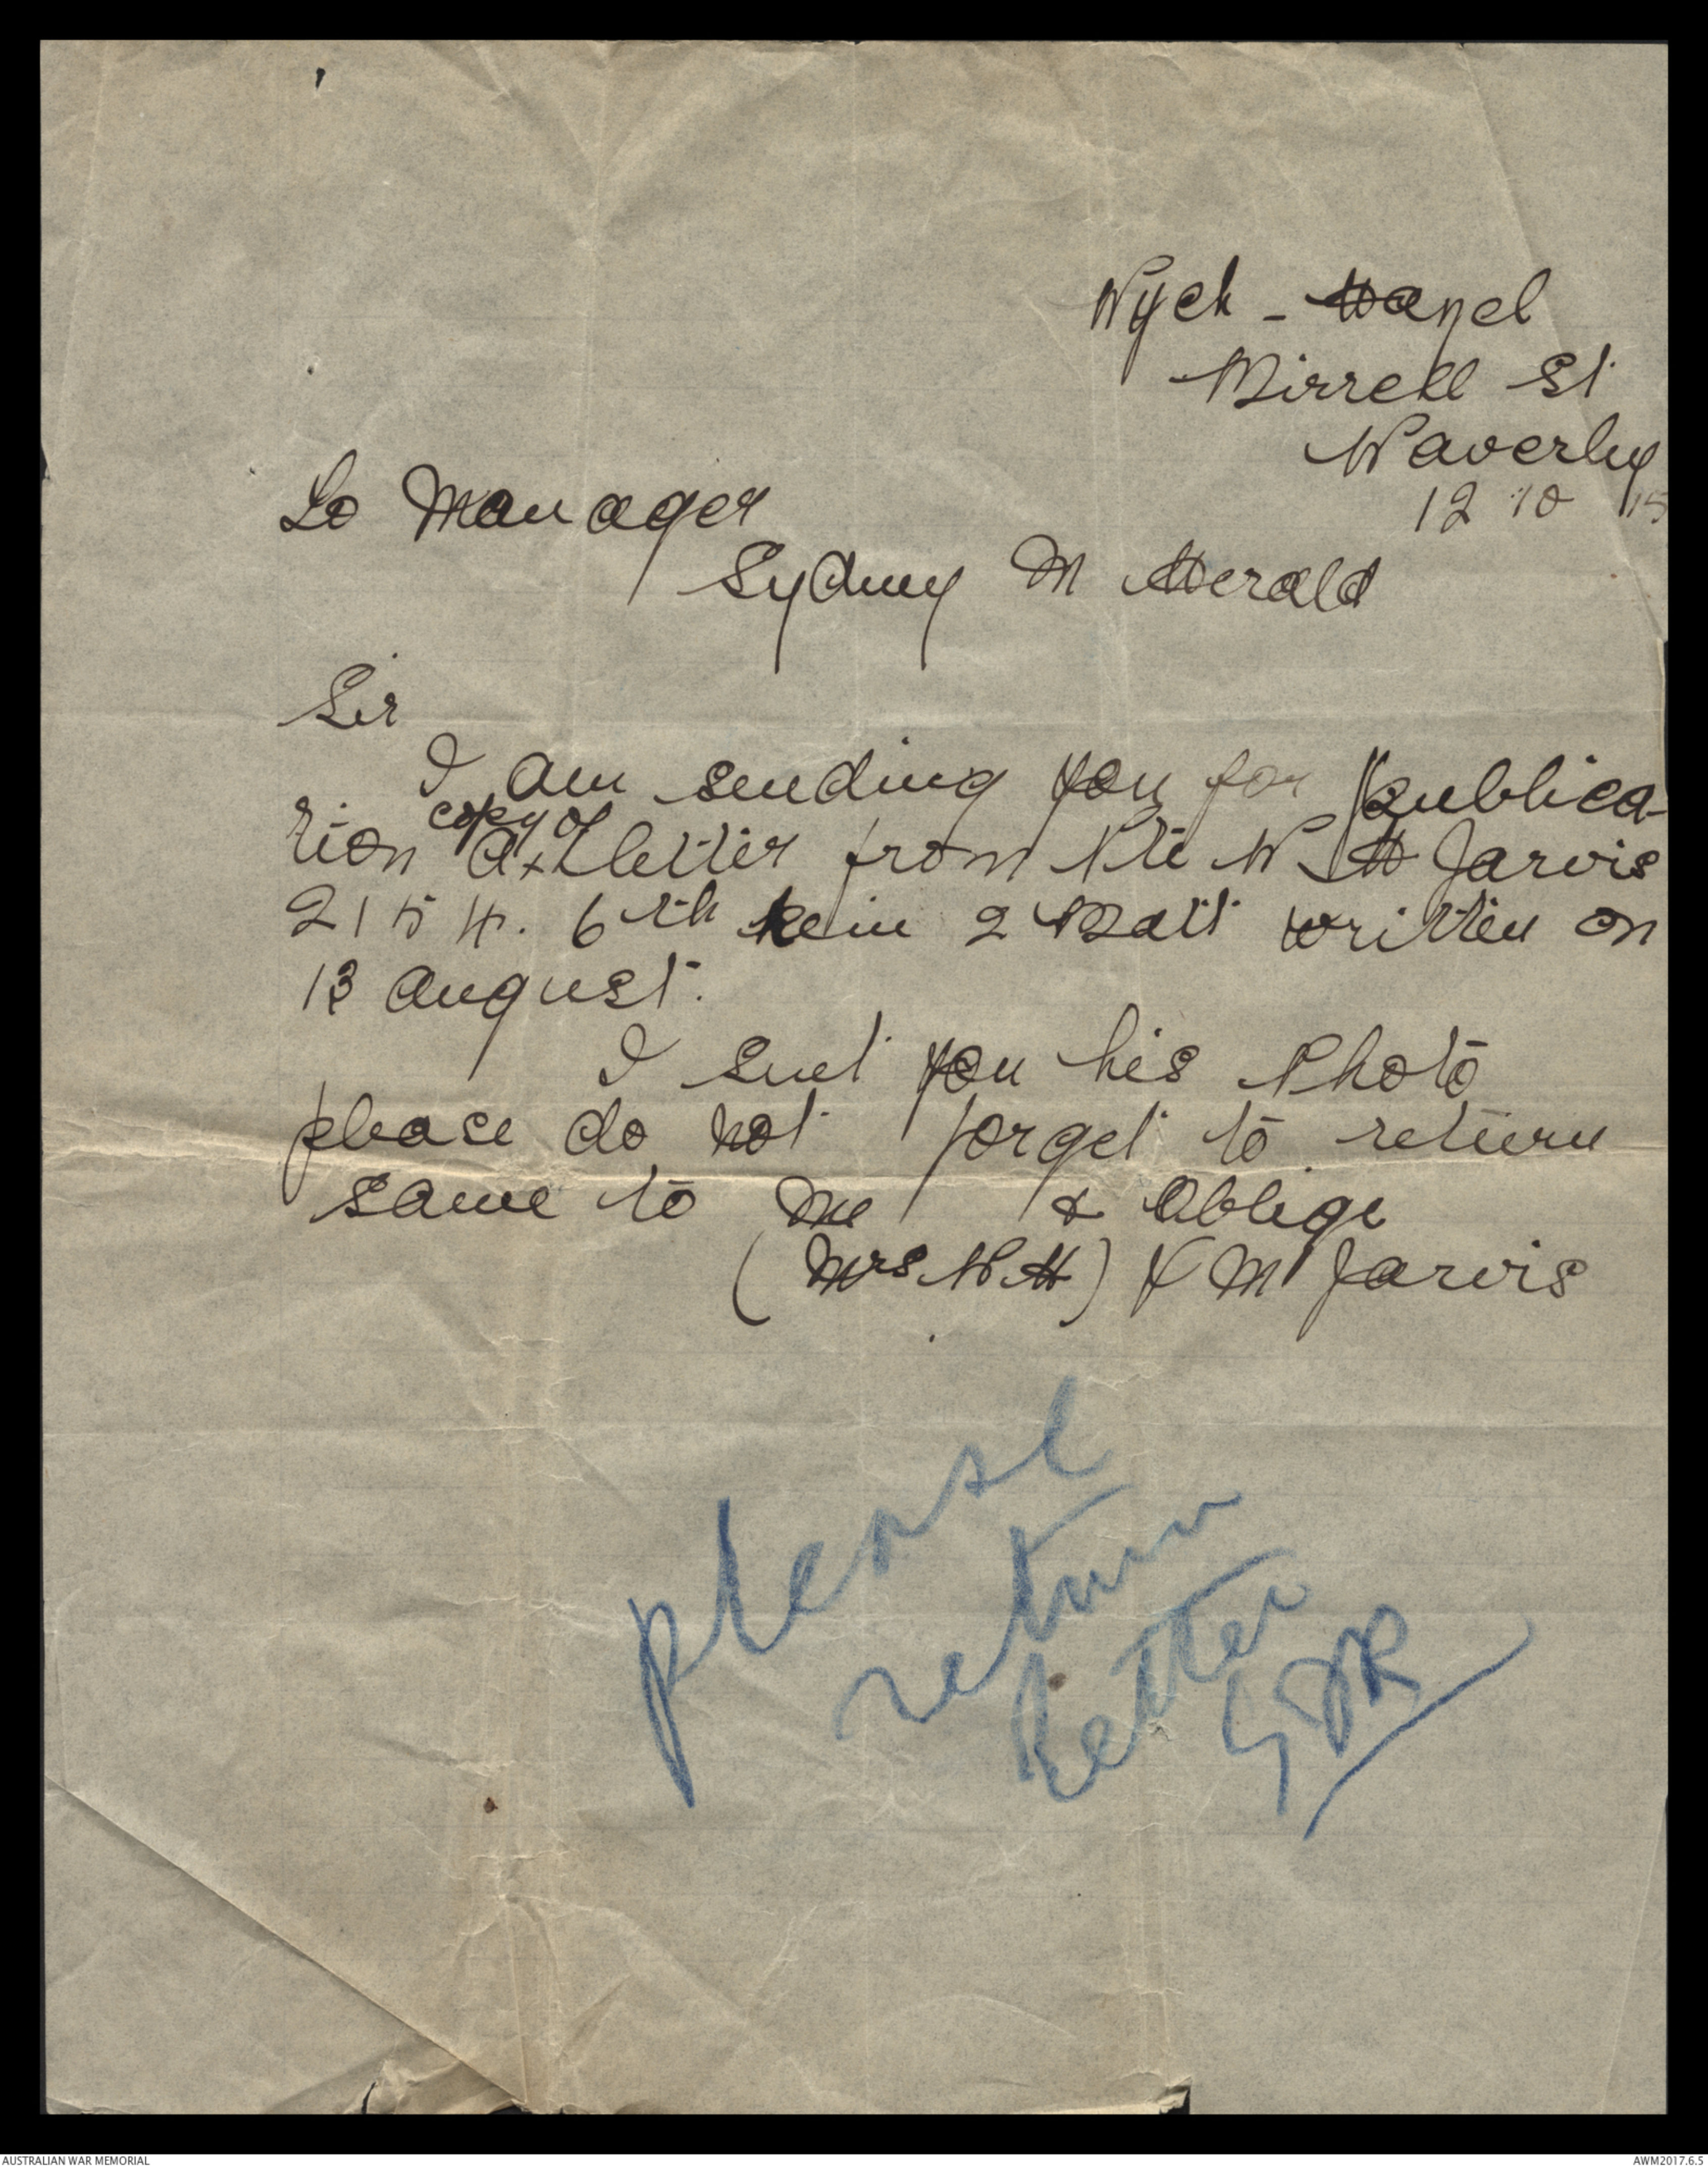 Wych - Hazel
Birrell St
Waverley
12 10 15
To Manager
Sydney M Herald
Sir
I am sending you for publica-
copy of
tion a x letter from Pte W H Jarvis
2154. 6th Rein 2 Batt written on
13 August.
I sent you his Photo
please do not forget to return
same to me & oblige
(Mrs W.H) K M Jarvis
please
return
letter
AUSTRALIAN WAR MEMORIAL
AWM2017.6.5